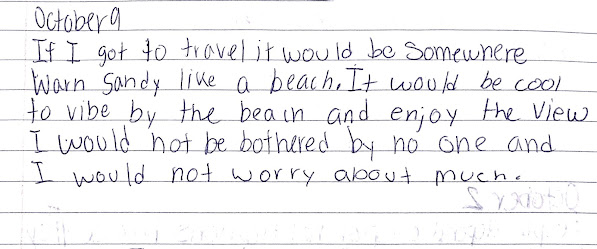 October 9
If I got to travel it would be Somewhere
Warn Sandy like a beach. It would be cool
to vibe by the beach and enjoy the View
I would not be bothered by no one and
I would not worry about much.
October 2